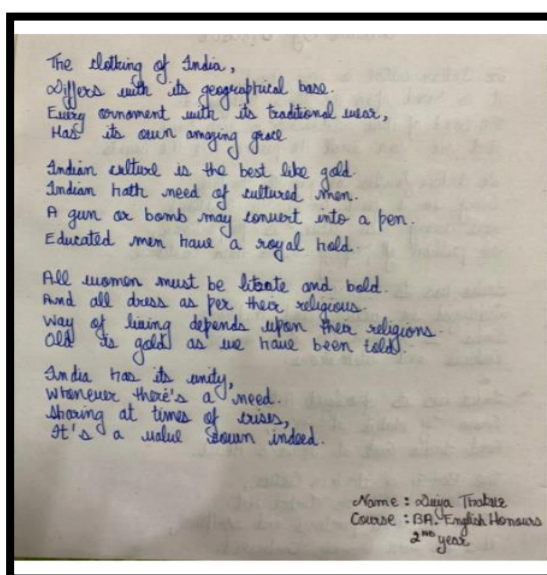 The clothing of India,
Differs with its geographical base.
Every ornament with its traditional wear,
Has its own amazing grace
Indian culture is the best like gold.
Indian hath need of cultured men.
A gun or bomb may convert into a pen.
Educated men have a royal hold.
All women must be literate and bold.
And all dress as per their religious.
Way of living depends upon their religions.
Old is gold as we have been told.
India has its unity,
Whenever there's a need.
Sharing at times of crises,
It's a value sown indeed.
Name :
Course : BA. English Honours
2nd year